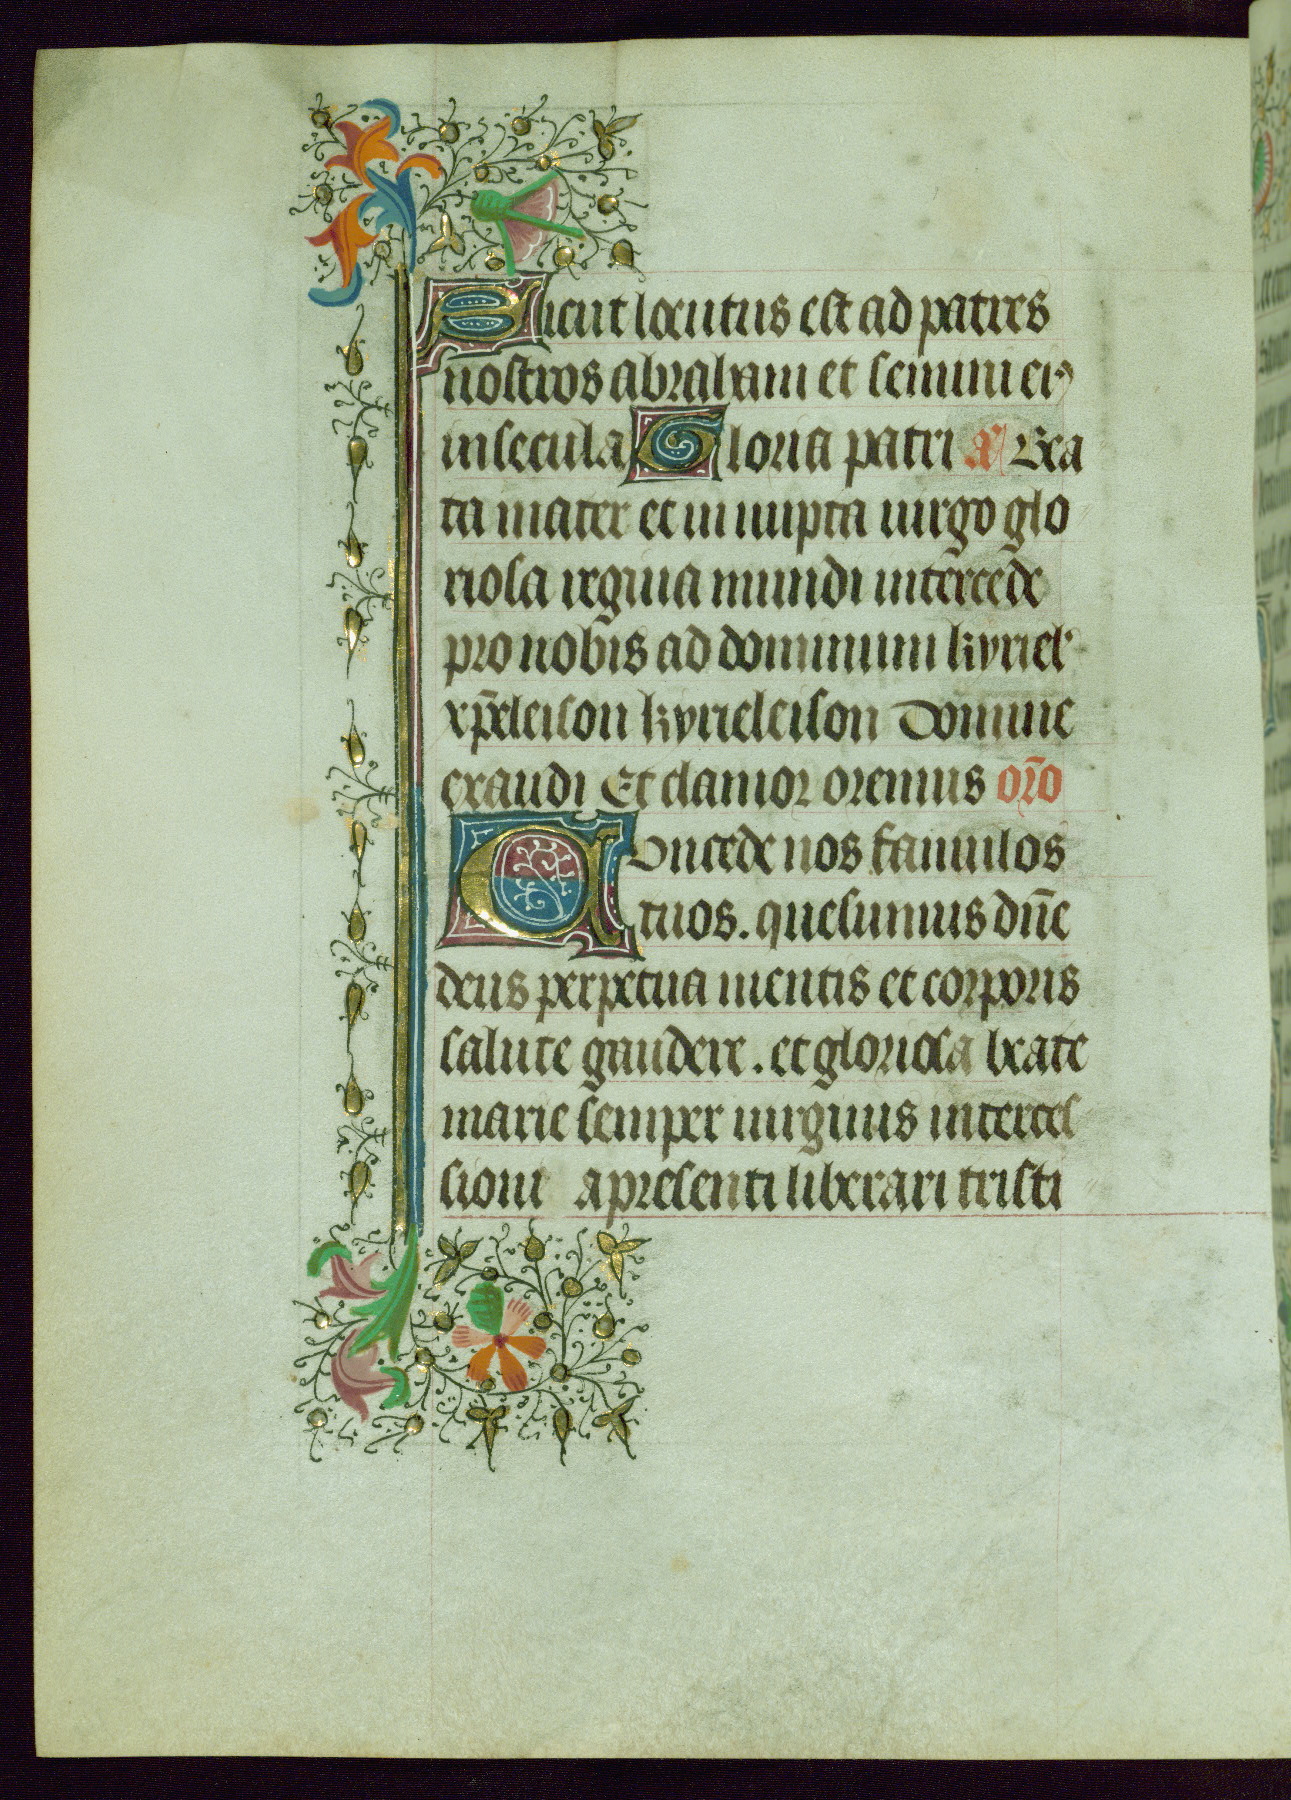 Sicut locutus est ad patres
nostros abraham et semini ei9
in secula Gloria patri a͞ Bea
ta mater et in nupta uirgo glo
riosa regina mundi intercede
pro nobis ad dominum kyriel'
xp̄eleison kyrieleison Domine
exaudi Et clamor oremus or̄o
Concede nos famulos
tuos. quesumus dn̄e
deus perpetua mentis et corporis
salute gaudere. et gloriosa beate
marie semper uirginis interces
sione a presenti liberari tristi